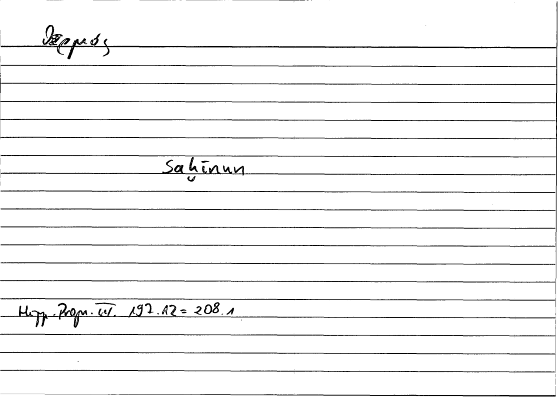 θερμός
saḫīnun
Hipp. Progn. III. 192.12 = 208.1